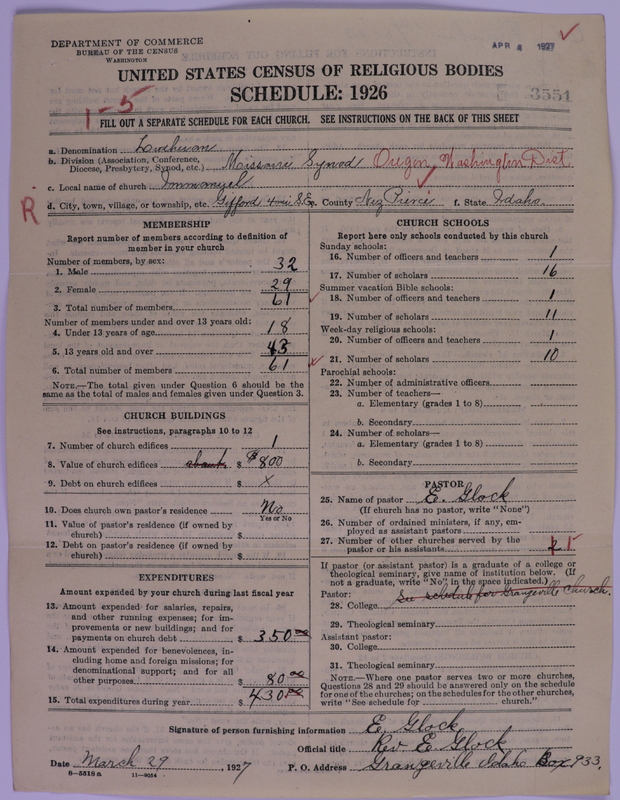 DEPARTMENT OF COMMERCE
BUREAU OF THE CENSUS
WASHINGTON
APR 4 1927
UNITED STATES CENSUS OF RELIGIOUS BODIES
SCHEDULE: 1926
3551
1-5
FILL OUT A SEPARATE SCHEDULE FOR EACH CHURCH. SEE INSTRUCTIONS ON THE BACK OF THIS SHEET
a. Denomination Lutheran
b. Division (Association, Conference, Diocese, Presbytery, Synod, etc.) Missouri Synod Oregon, Washington Dist
c. Local name of church Immanuel
R
d. City, town, village, or township, etc. Gifford 4 mi S.E. e. County Nez Perce f. State Idaho
MEMBERSHIP
Report number of members according to definition of
member in your church
Number of members, by sex:
1. Male 32
2. Female 29
3. Total number of members 61
Number of members under and over 13 years old:
4. Under 13 years of age 18
5. 13 years old and over 43
6. Total number of members 61
NOTE.—The total given under Question 6 should be the
same as the total of males and females given under Question 3.
CHURCH BUILDINGS
See instructions, paragraphs 10 to 12
7. Number of church edifices 1
8. Value of church edifices about $ $800
9. Debt on church edifices $ X
10. Does church own pastor's residence No
Yes or No
11. Value of pastor's residence (if owned by
church) $
12. Debt on pastor's residence (if owned by
church) $
EXPENDITURES
Amount expended by your church during last fiscal year
13. Amount expended for salaries, repairs,
and other running expenses; for im-
provements or new buildings; and for
payments on church debt $ 350 00
14. Amount expended for benevolences, in-
cluding home and foreign missions; for
denominational support; and for all
other purposes $ 80 00
15. Total expenditures during year $ 430 00
CHURCH SCHOOLS
Report here only schools conducted by this church
Sunday schools:
16. Number of officers and teachers 1
17. Number of scholars 16
Summer vacation Bible schools:
18. Number of officers and teachers 1
19. Number of scholars 11
Week-day religious schools:
20. Number of officers and teachers 1
21. Number of scholars 10
Parochial schools:
22. Number of administrative officers
23. Number of teachers—
a. Elementary (grades 1 to 8)
b. Secondary
24. Number of scholars—
a. Elementary (grades 1 to 8)
b. Secondary
PASTOR
25. Name of pastor E. Glock
(If church has no pastor, write "None")
26. Number of ordained ministers, if any, em-
ployed as assistant pastors
27. Number of other churches served by the
pastor or his assistants
If pastor (or assistant pastor) is a graduate of a college or
theological seminary, give name of institution below. (If
not a graduate, write "No" in the space indicated.)
Pastor: See schedule for Grangeville Church.
28. College
29. Theological seminary
Assistant pastor:
30. College
31. Theological seminary
NOTE.—Where one pastor serves two or more churches,
Questions 28 and 29 should be answered only on the schedule
for one of the churches; on the schedules for the other churches,
write "See schedule for church."
Signature of person furnishing information E. Glock
Official title Rev E. Glock
Date March 29, 1927 P. O. Address Grangeville Idaho Box 933.
8-5518 a 11-9054